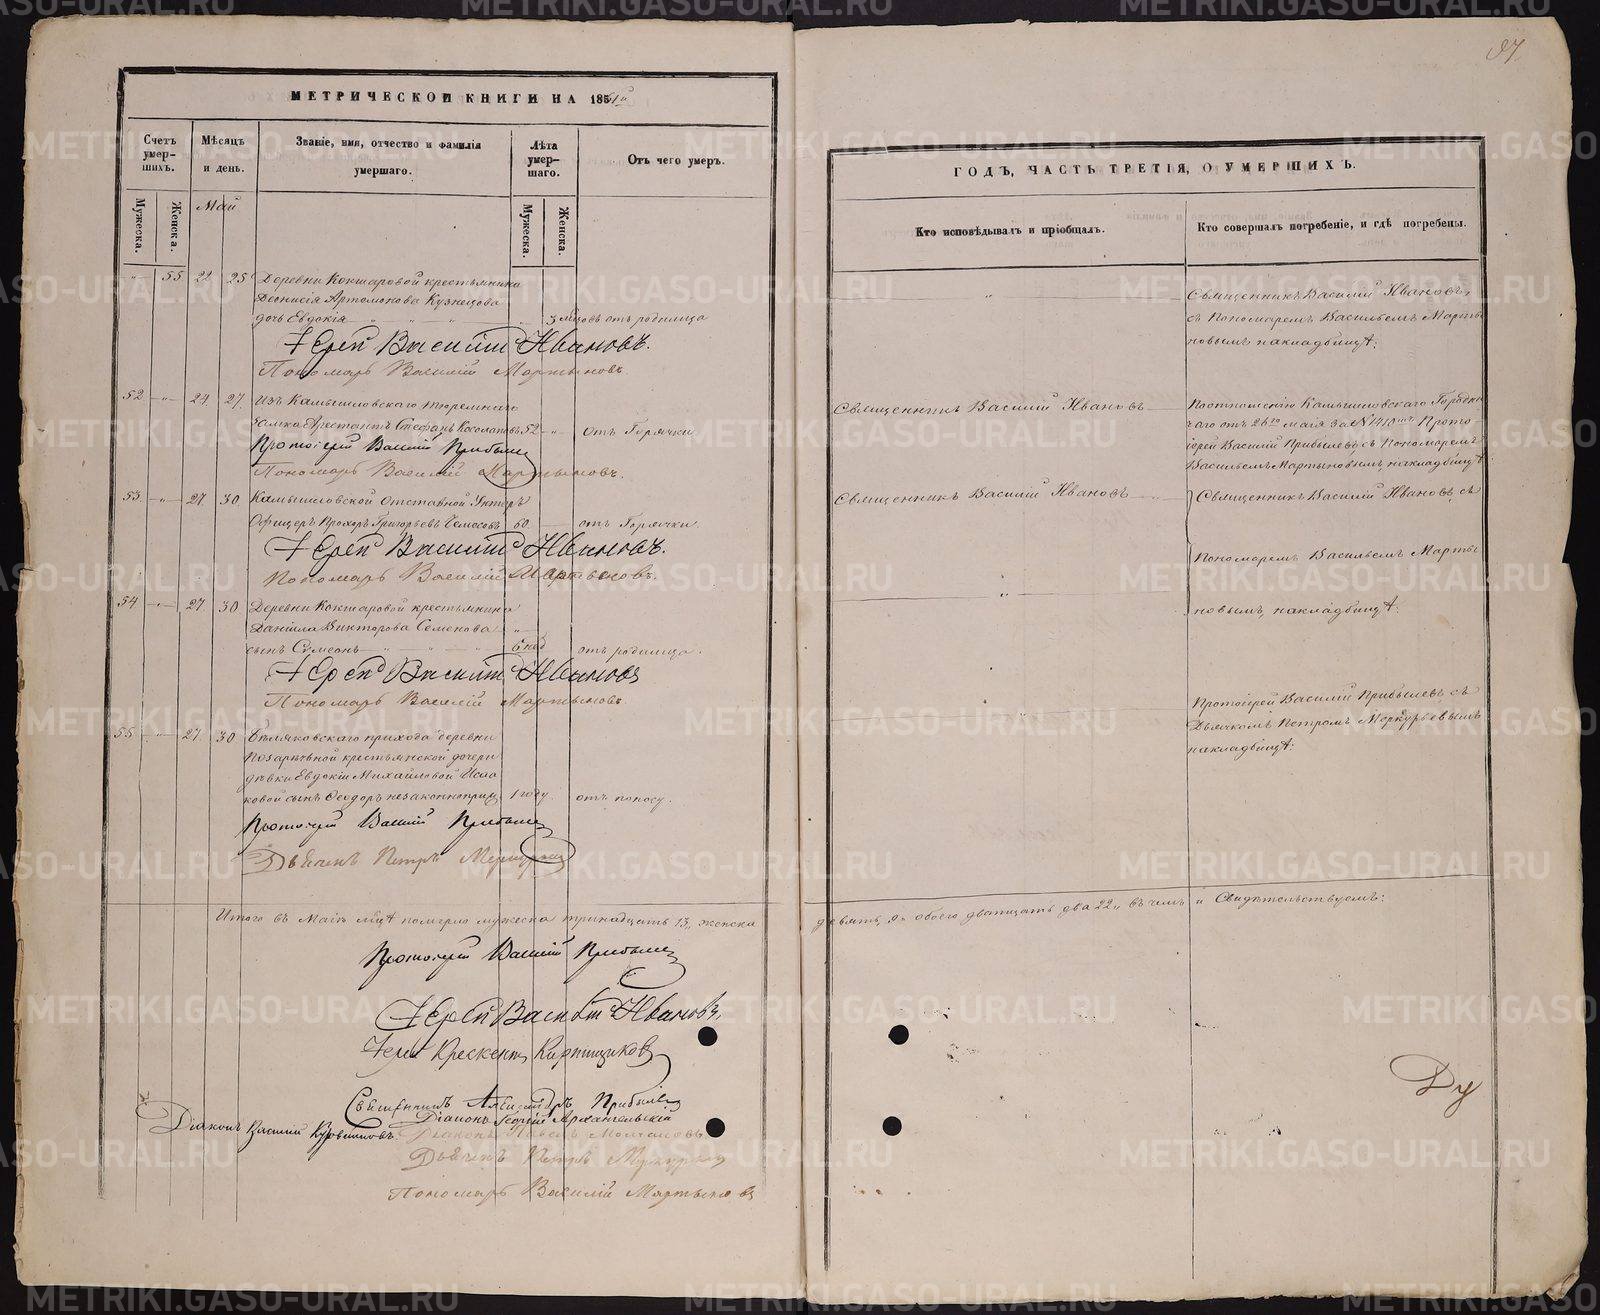 97
МЕТРИЧЕСКОЙ КНИГИ НА 1851й
Счетъ умер-шихъ.
Мѣсяцъ и день.
Званіе, имя, отчество и фамилія умершаго.
Лѣта умер-шаго.
Отъ чего умеръ.
Мужеска.
Женска.
Май
Мужеска.
Женска.
" 55 22 25 Деревни Кокшаровой крестьянина
Деонисія Артомонова Кузнецова
дочь Евдокія " " " " 3 мѣцовъ отъ родимца
Іерей Василій Ивановъ.
Пономарь Василій Мартыновъ.
52 " 24 27 Изъ Камышловскаго тюремнаго
замка Арестантъ Стефанъ 52 " отъ Горячки
Протоіерей Василій Прибылев
Пономарь Василій Мартыновъ.
53 " 27 30 Камышловской Отставной Унтеръ
Офицеръ Прохоръ Григорьевъ 60 отъ Горячки
Іерей Василій Ивановъ.
Пономарь Василій Мартыновъ.
54 " 27 30 Деревни Кокшаровой крестьянина
Даніила Викторова Семенова "
сынъ Сумеонъ " " " 6 нед отъ родимца.
Іерей Василій Ивановъ
Пономарь Василій Мартыновъ.
55 " 27 30 прихода деревни
крестьянской дочери
дѣвки Евдокіи Михайловой
ковой сынъ Ѳеодоръ 1 году. отъ поносу.
Протоіерей Василій Прибылев
Дьячекъ Петръ Меркурьев
Итого въ Маіѣ мцѣ померло мужеска тринадцать 13, женска
Протоіерей Василій Прибылев
Іерей Василій Ивановъ,
Іерей Крескентъ Кирпищиковъ
Священникъ Александръ Прибылев
Діаконъ Георгій Архангельскій
Діаконъ Василій
Діаконъ Павелъ Молчановъ
Дьячекъ Петръ Меркурьев
Пономарь Василій Мартыновъ
ГОДЪ, ЧАСТЬ ТРЕТІЯ, О УМЕРШИХЪ.
Кто исповѣдывалъ и пріобщалъ.
Кто совершалъ погребеніе, и гдѣ погребены.
" Священникъ Василій Ивановъ,
съ Пономаремъ Васильемъ Марты
новымъ, накладбищѣ:
Священникъ Василій Ивановъ Поотношенію Камышловскаго Городни
чаго отъ 26го мая за №1410мъ Прото-
іерей Василій Прибылевъ съ Пономаремъ
Васильемъ Мартыновымъ, накладбищѣ
Священникъ Василій Ивановъ " Священникъ Василій Ивановъ, съ
Пономаремъ Васильемъ Марты
" новымъ, накладбищѣ:
Протоіерей Василій Прибылевъ съ
" Дьячкомъ Петромъ Меркурьевымъ
накладбищѣ:
девять, 9. обоего дватцать два 22, въ чемъ и Свидѣтельствуемъ:
Ду